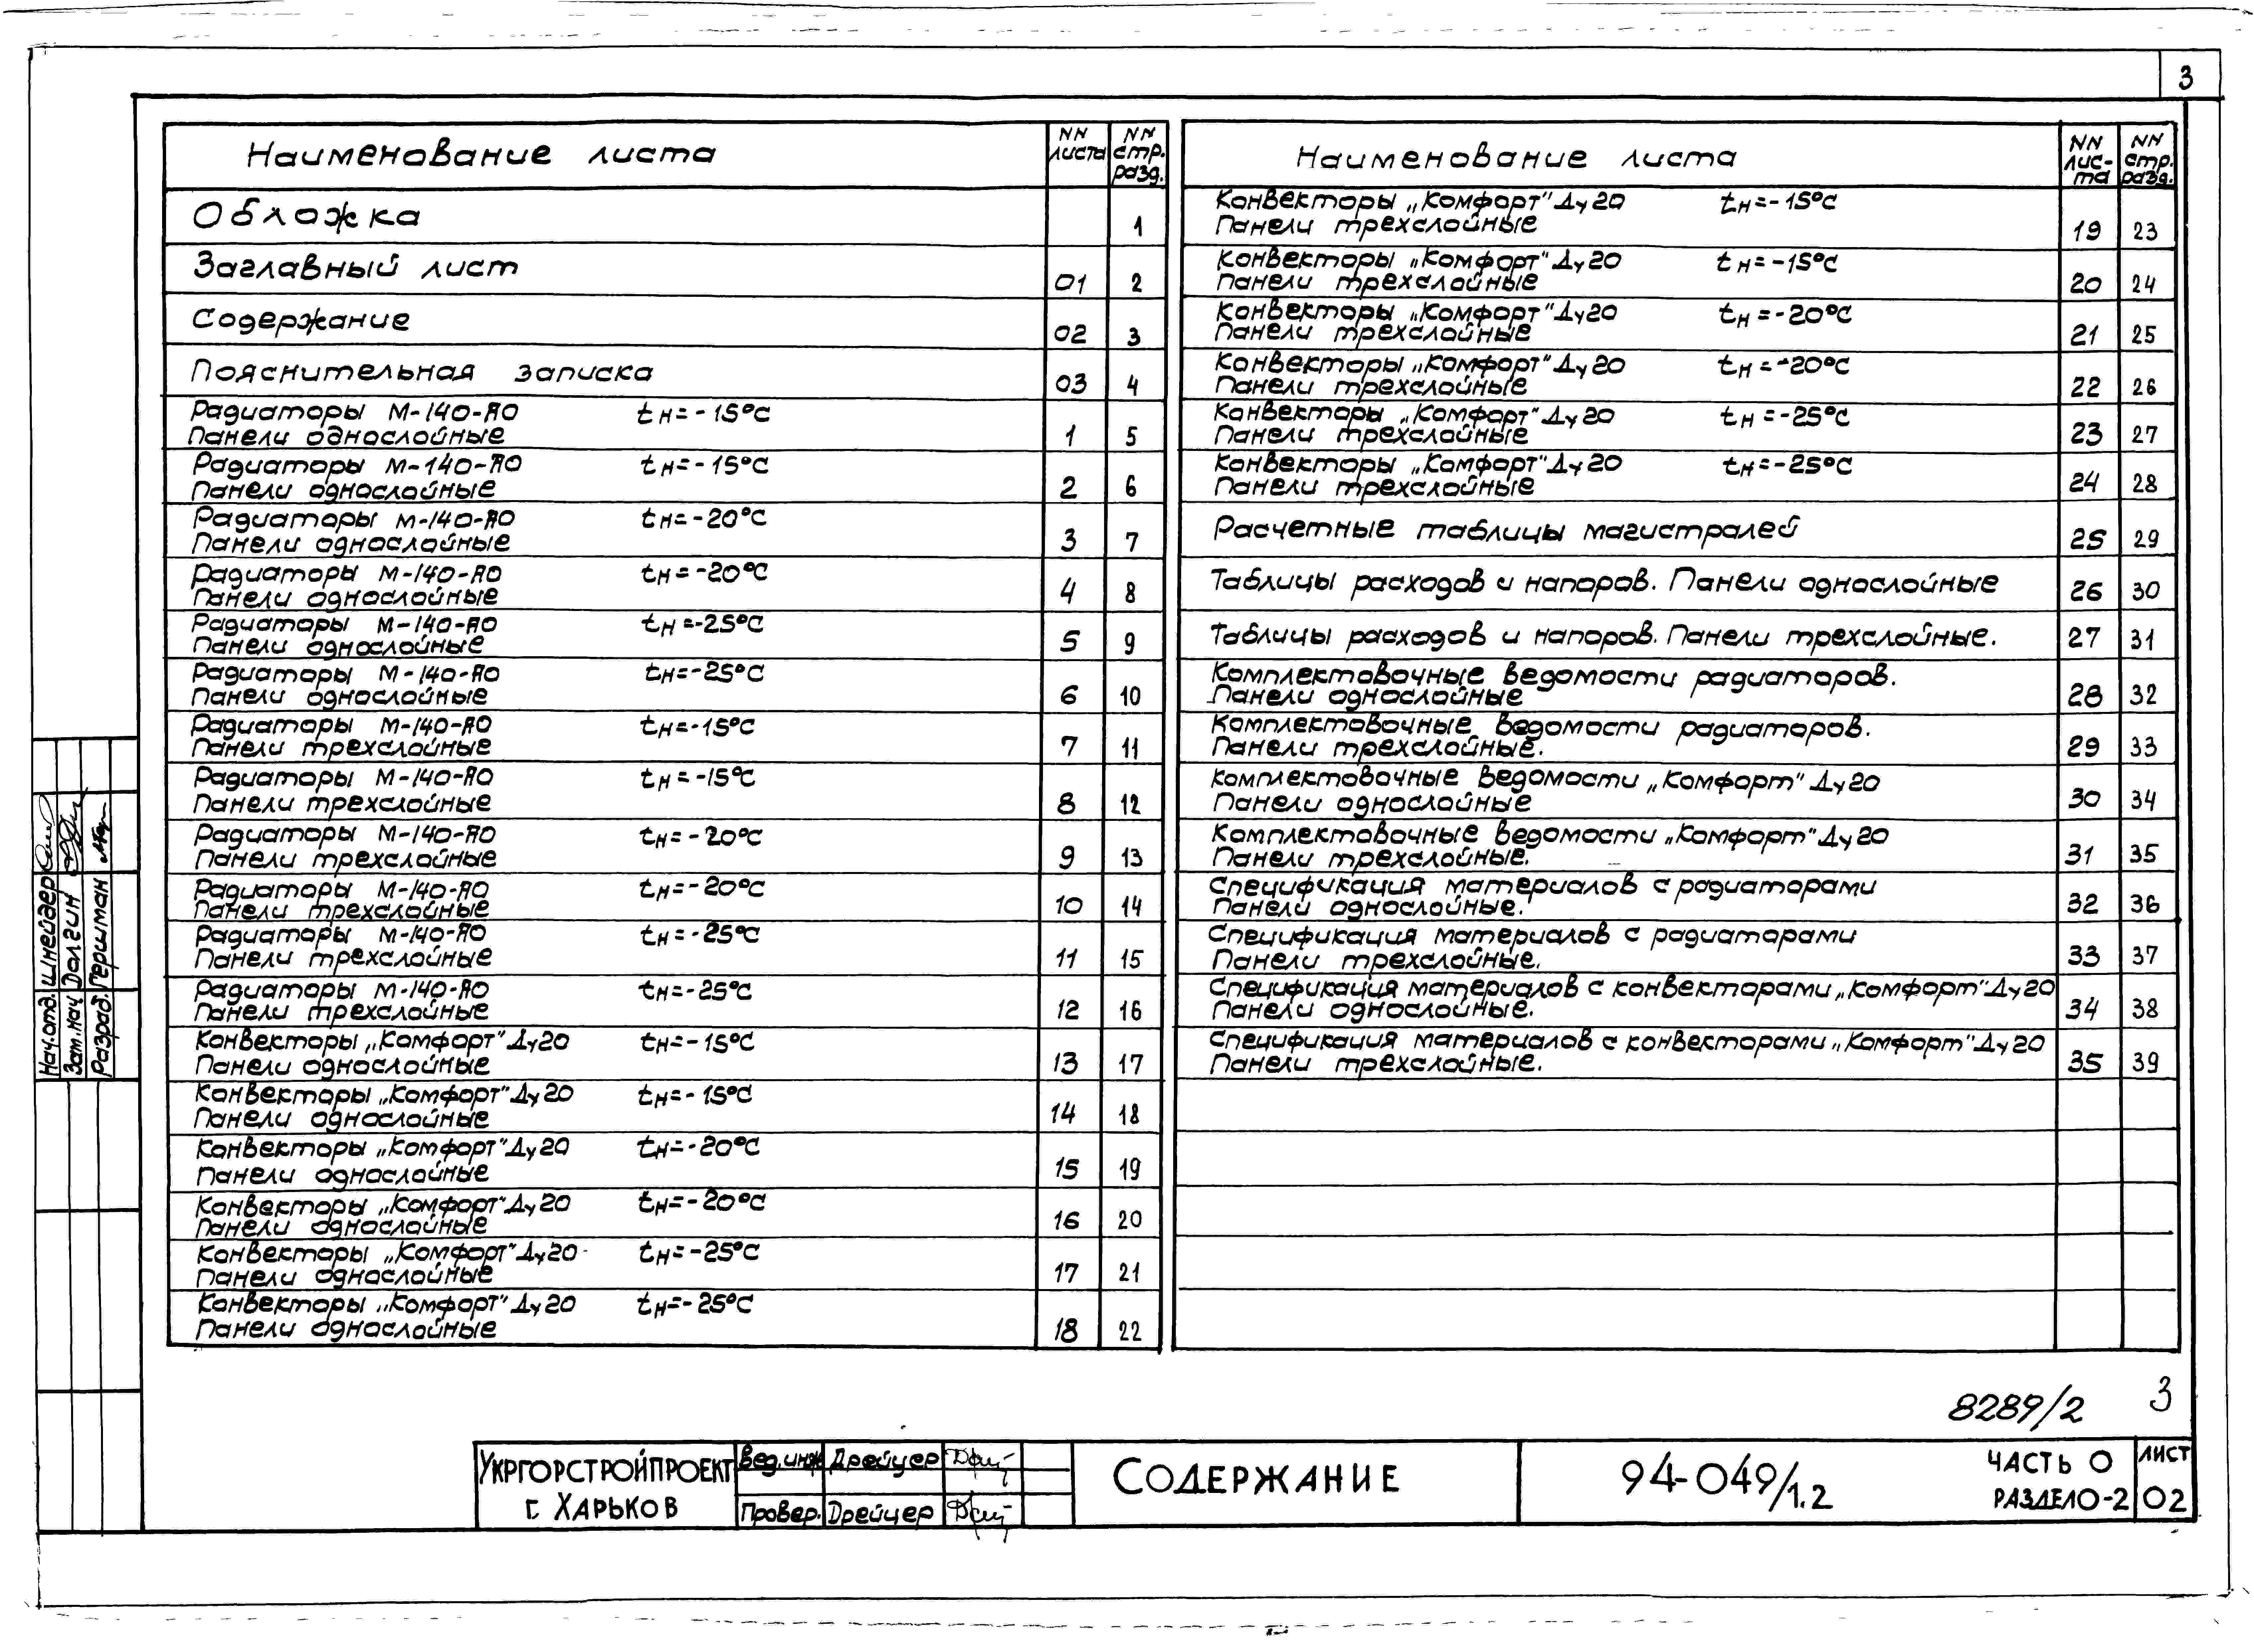 3
Наименование листа
NN листа
NN стр. разд.
Обложка 1
Заглавный лист 01 2
Содержание 02 3
Пояснительная записка 03 4
Радиаторы М-140-АО tн=-15°С
Панели однослойные 1 5
Радиаторы М-140-АО tн=-15°С
Панели однослойные 2 6
Радиаторы М-140-АО tн=-20°С
Панели однослойные 3 7
Радиаторы М-140-АО tн=-20°С
Панели однослойные 4 8
Радиаторы М-140-АО tн=-25°С
Панели однослойные 5 9
Радиаторы М-140-АО tн=-25°С
Панели однослойные 6 10
Радиаторы М-140-АО tн=-15°С
Панели трехслойные 7 11
Радиаторы М-140-АО tн=-15°С
Панели трехслойные 8 12
Радиаторы М-140-АО tн=-20°С
Панели трехслойные 9 13
Радиаторы М-140-АО tн=-20°С
Панели трехслойные 10 14
Радиаторы М-140-АО tн=-25°С
Панели трехслойные 11 15
Радиаторы М-140-АО tн=-25°С
Панели трехслойные 12 16
Конвекторы „Комфорт" Ду20 tн=-15°С
Панели однослойные 13 17
Конвекторы „Комфорт" Ду20 tн=-15°С
Панели однослойные 14 18
Конвекторы „Комфорт" Ду20 tн=-20°С
Панели однослойные 15 19
Конвекторы „Комфорт" Ду20 tн=-20°С
Панели однослойные 16 20
Конвекторы „Комфорт" Ду20 tн=-25°С
Панели однослойные 17 21
Конвекторы „Комфорт" Ду20 tн=-25°С
Панели однослойные 18 22
Наименование листа
NN лис-та
NN стр. разд.
Конвекторы „Комфорт" Ду20 tн=-15°С
Панели трехслойные 19 23
Конвекторы „Комфорт" Ду20 tн=-15°С
Панели трехслойные 20 24
Конвекторы „Комфорт" Ду20 tн=-20°С
Панели трехслойные 21 25
Конвекторы „Комфорт" Ду20 tн=-20°С
Панели трехслойные 22 26
Конвекторы „Комфорт" Ду20 tн=-25°С
Панели трехслойные 23 27
Конвекторы „Комфорт" Ду20 tн=-25°С
Панели трехслойные 24 28
Расчетные таблицы магистралей 25 29
Таблицы расходов и напоров. Панели однослойные 26 30
Таблицы расходов и напоров. Панели трехслойные. 27 31
Комплектовочные ведомости радиаторов.
Панели однослойные 28 32
Комплектовочные ведомости радиаторов.
Панели трехслойные. 29 33
Комплектовочные ведомости „Комфорт" Ду20
Панели однослойные 30 34
Комплектовочные ведомости „Комфорт" Ду20
Панели трехслойные. 31 35
Спецификация материалов с радиаторами
Панели однослойные. 32 36
Спецификация материалов с радиаторами
Панели трехслойные. 33 37
Спецификация материалов с конвекторами „Комфорт" Ду20
Панели однослойные. 34 38
Спецификация материалов с конвекторами „Комфорт" Ду20
Панели трехслойные. 35 39
Нач.отд. Шнейдер
Зам.нач Долгин
Разраб. Гершман
8289/2 3
Укргорстройпроект
г. Харьков
Вед.инж Дрейцер
Провер. Дрейцер
Содержание
94-049/1.2
Часть 0
Раздел 0-2
Лист
02